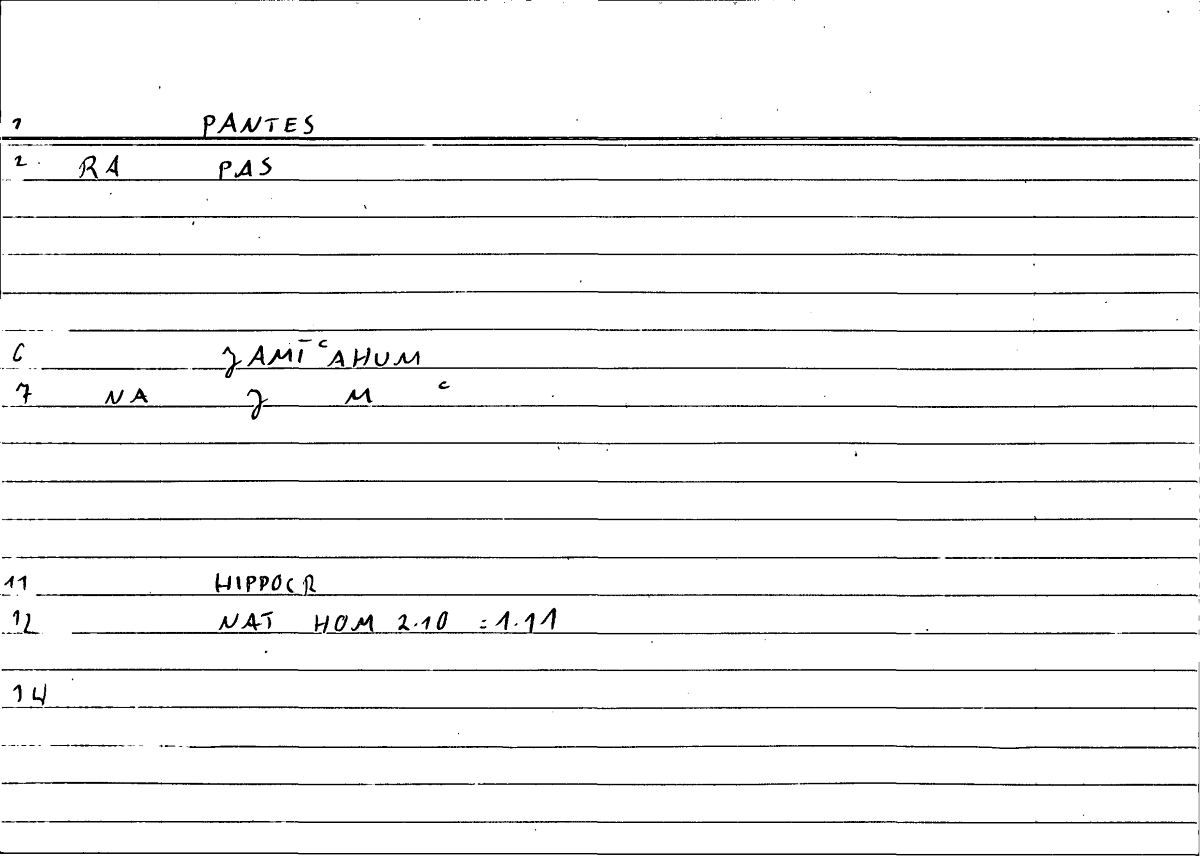 1 PANTES
2 RA PAS
6 ʒAMI̅ᶜAHUM
7 NA ʒ M ᶜ
11 HIPPOCR
12 NAT HOM 2.10 =1.11
14